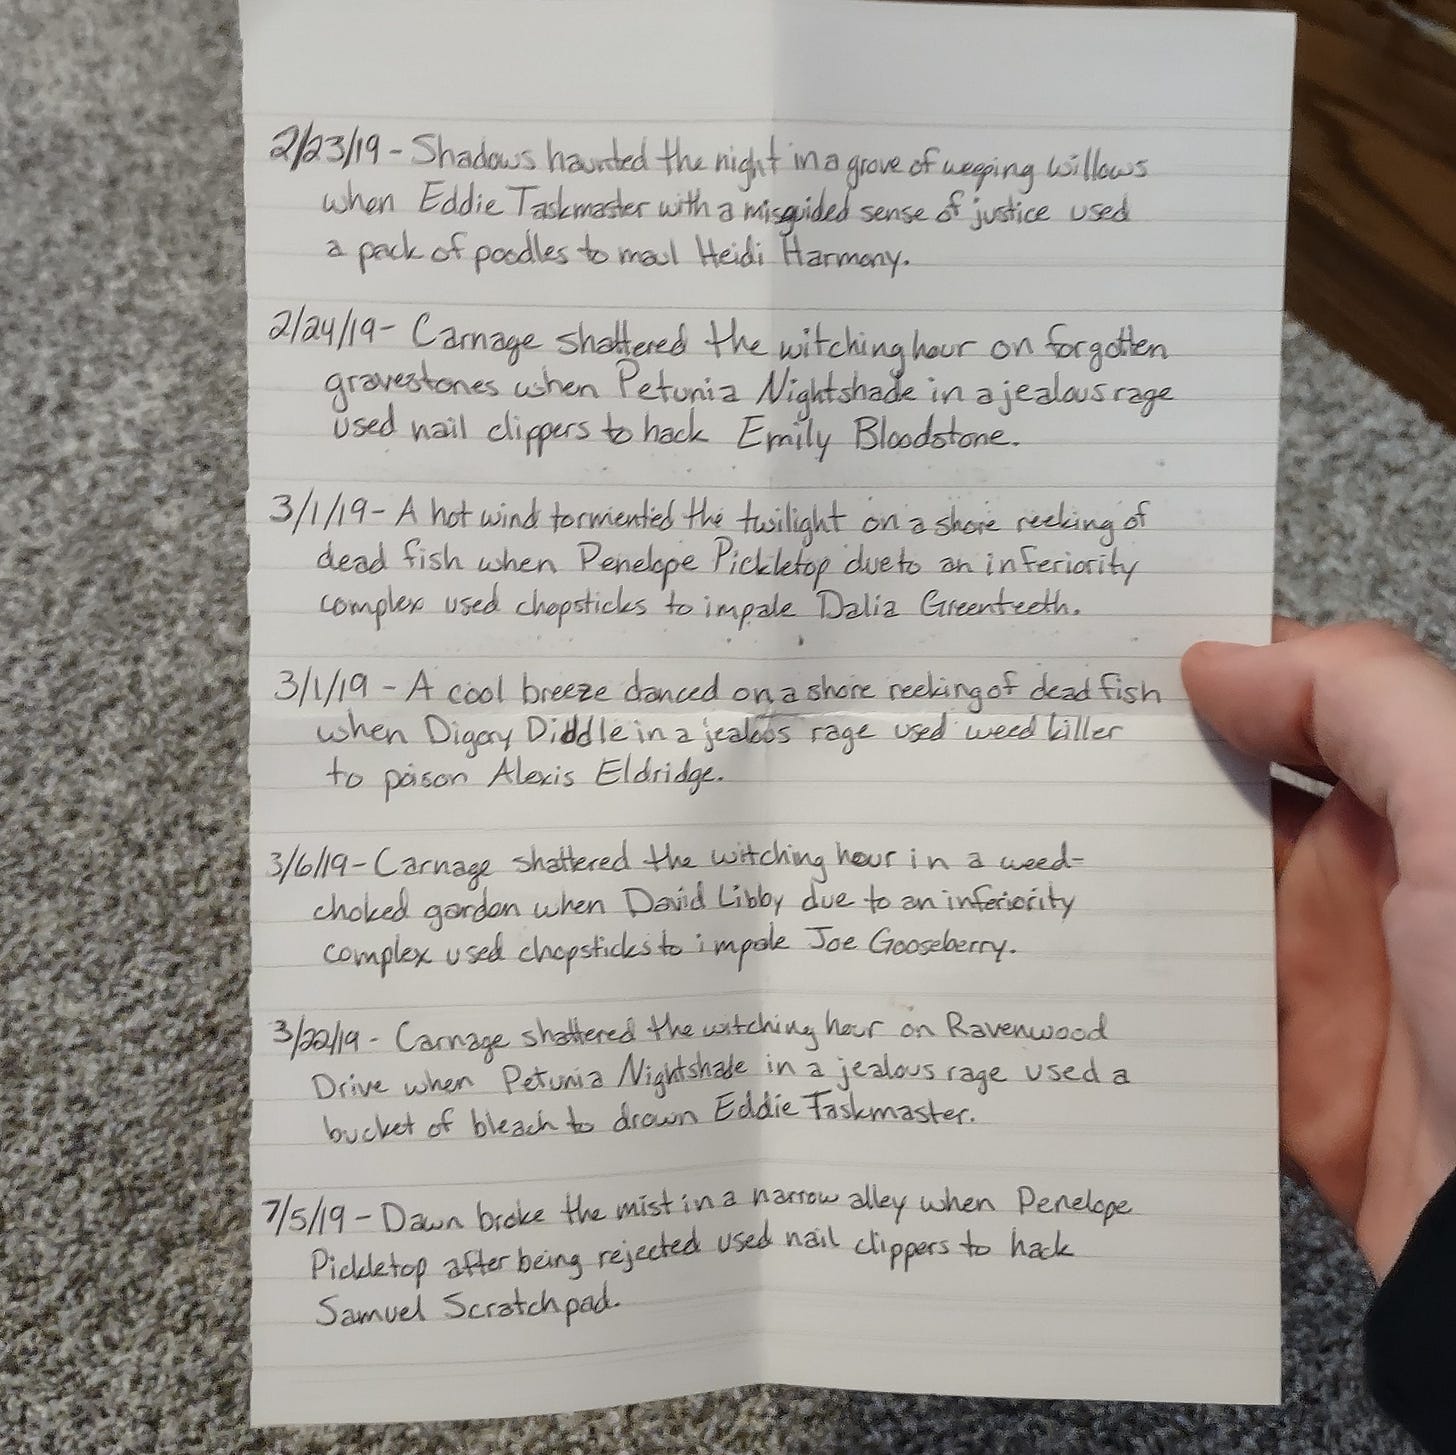 2/23/19 - Shadows haunted the night in a grove of weeping willows
when Eddie Taskmaster with a misguided sense of justice used
a pack of poodles to maul Heidi Harmony.
2/24/19 - Carnage shattered the witching hour on forgotten
gravestones when Petunia Nightshade in a jealous rage
used nail clippers to hack Emily Bloodstone.
3/1/19 - A hot wind tormented the twilight on a shore reeking of
dead fish when Penelope Pickletop due to an inferiority
complex used chopsticks to impale Dalia Greenteeth.
3/1/19 - A cool breeze danced on a shore reeking of dead fish
when Digory Diddle in a jealous rage used weed killer
to poison Alexis Eldridge.
3/6/19 - Carnage shattered the witching hour in a weed-
choked garden when David Libby due to an inferiority
complex used chopsticks to impale Joe Gooseberry.
3/22/19 - Carnage shattered the witching hour on Ravenwood
Drive when Petunia Nightshade in a jealous rage used a
bucket of bleach to drown Eddie Taskmaster.
7/5/19 - Dawn broke the mist in a narrow alley when Penelope
Pickletop after being rejected used nail clippers to hack
Samuel Scratchpad.